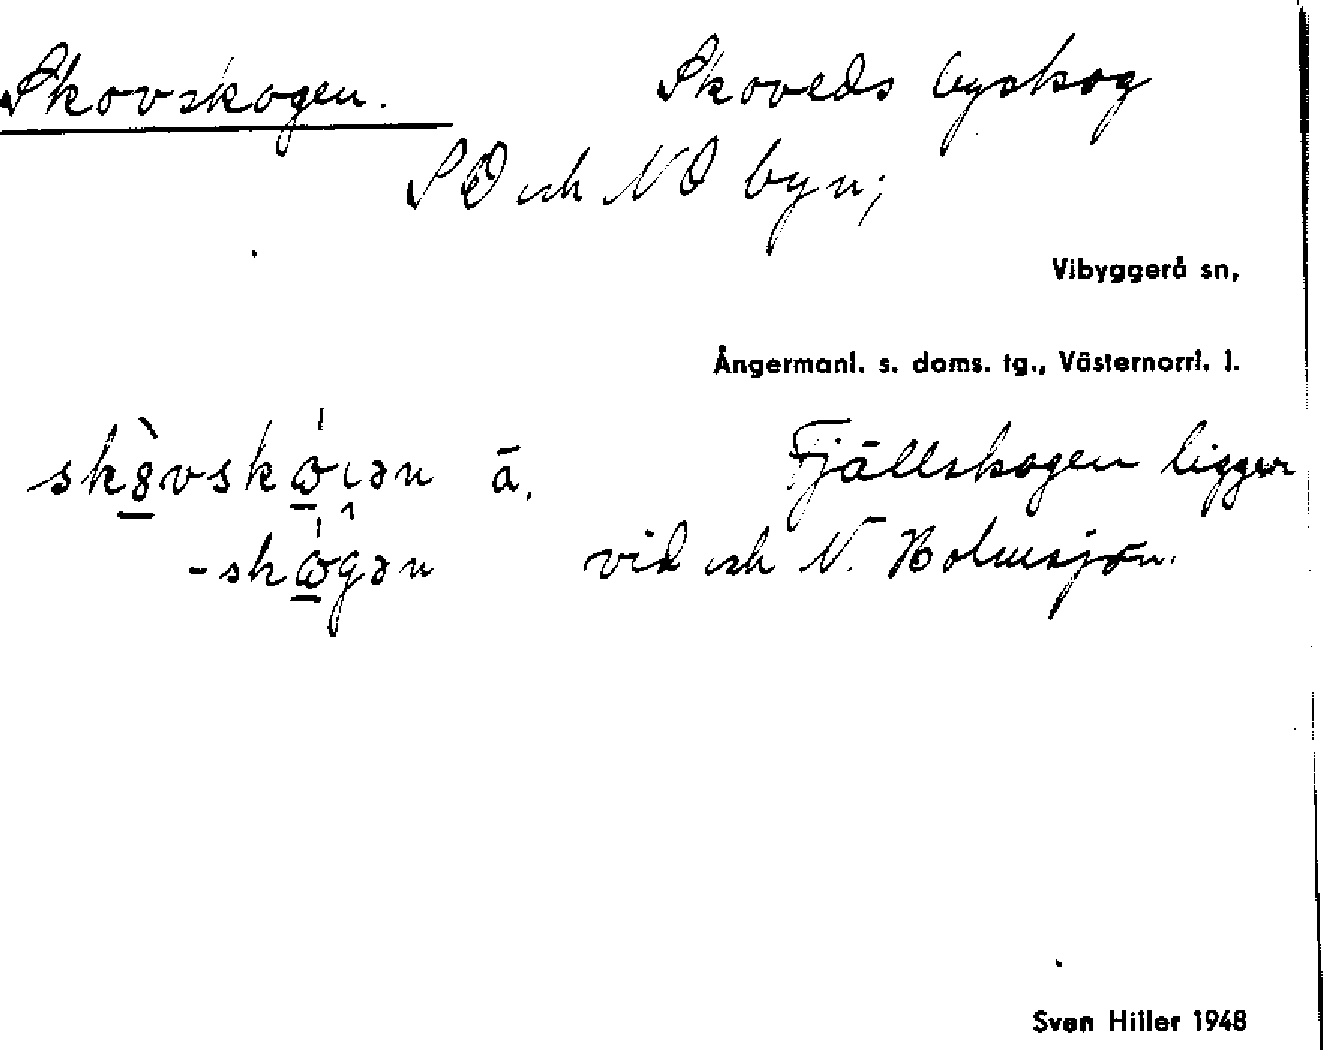 Skovskogen. Skoveds byskog
SO och NO byn;
Vibyggerå sn,
Ångermanl. s. doms. tg., Västernorrl. l.
skȯvskọıən ā. Fjällskogen ligger
-skọgən vid och N. Holmsjön.
Sven Hiller 1948